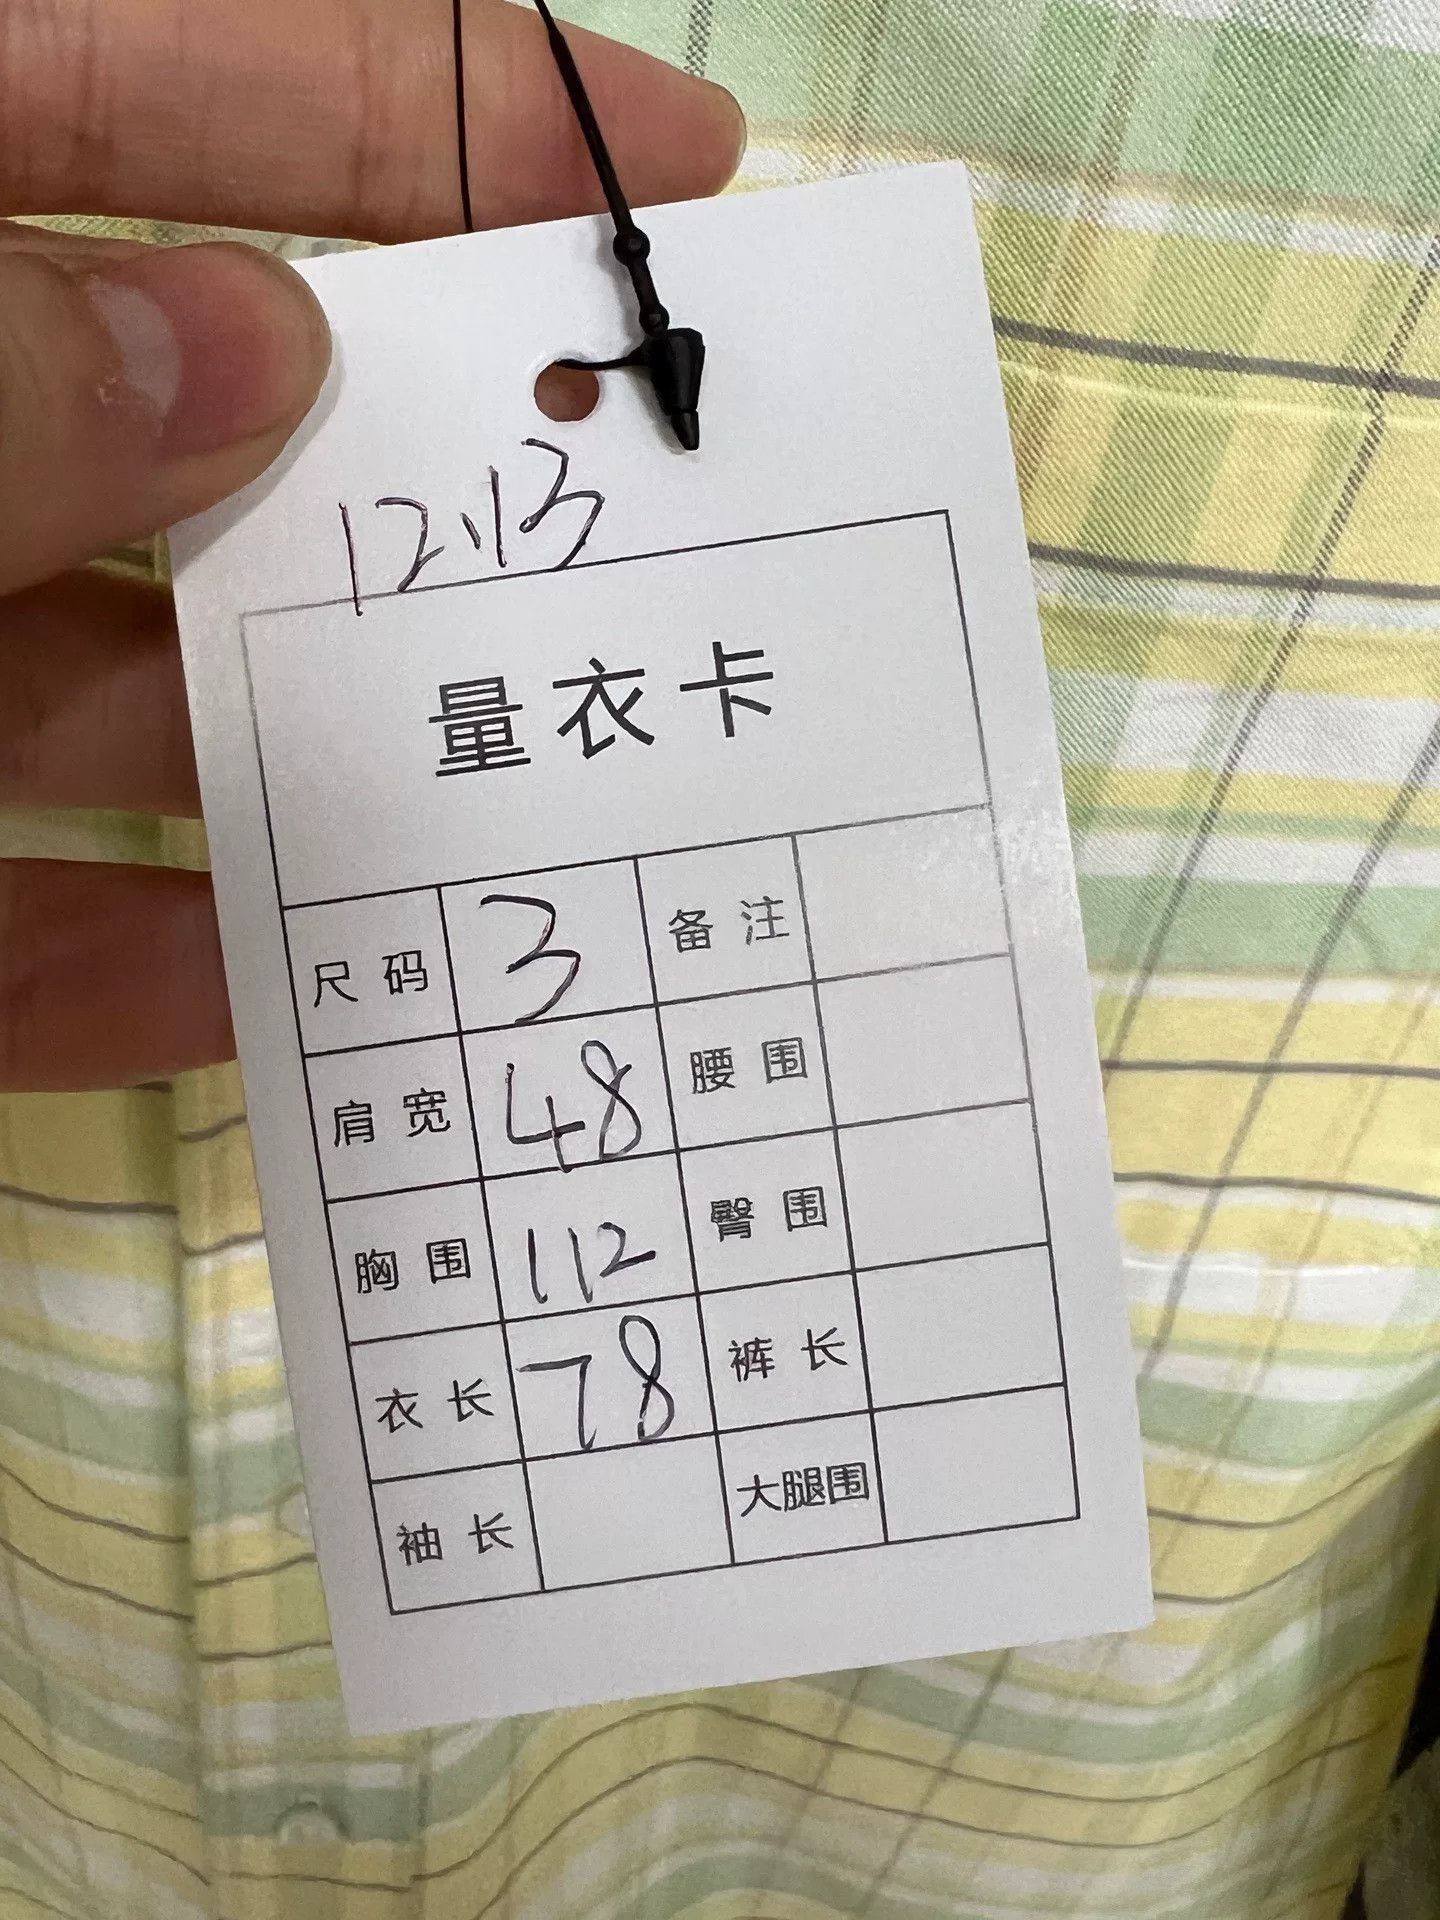 12.13
量衣卡
尺码 3 备注
肩宽 48 腰围
胸围 112 臀围
衣长 78 裤长
袖长 大腿围